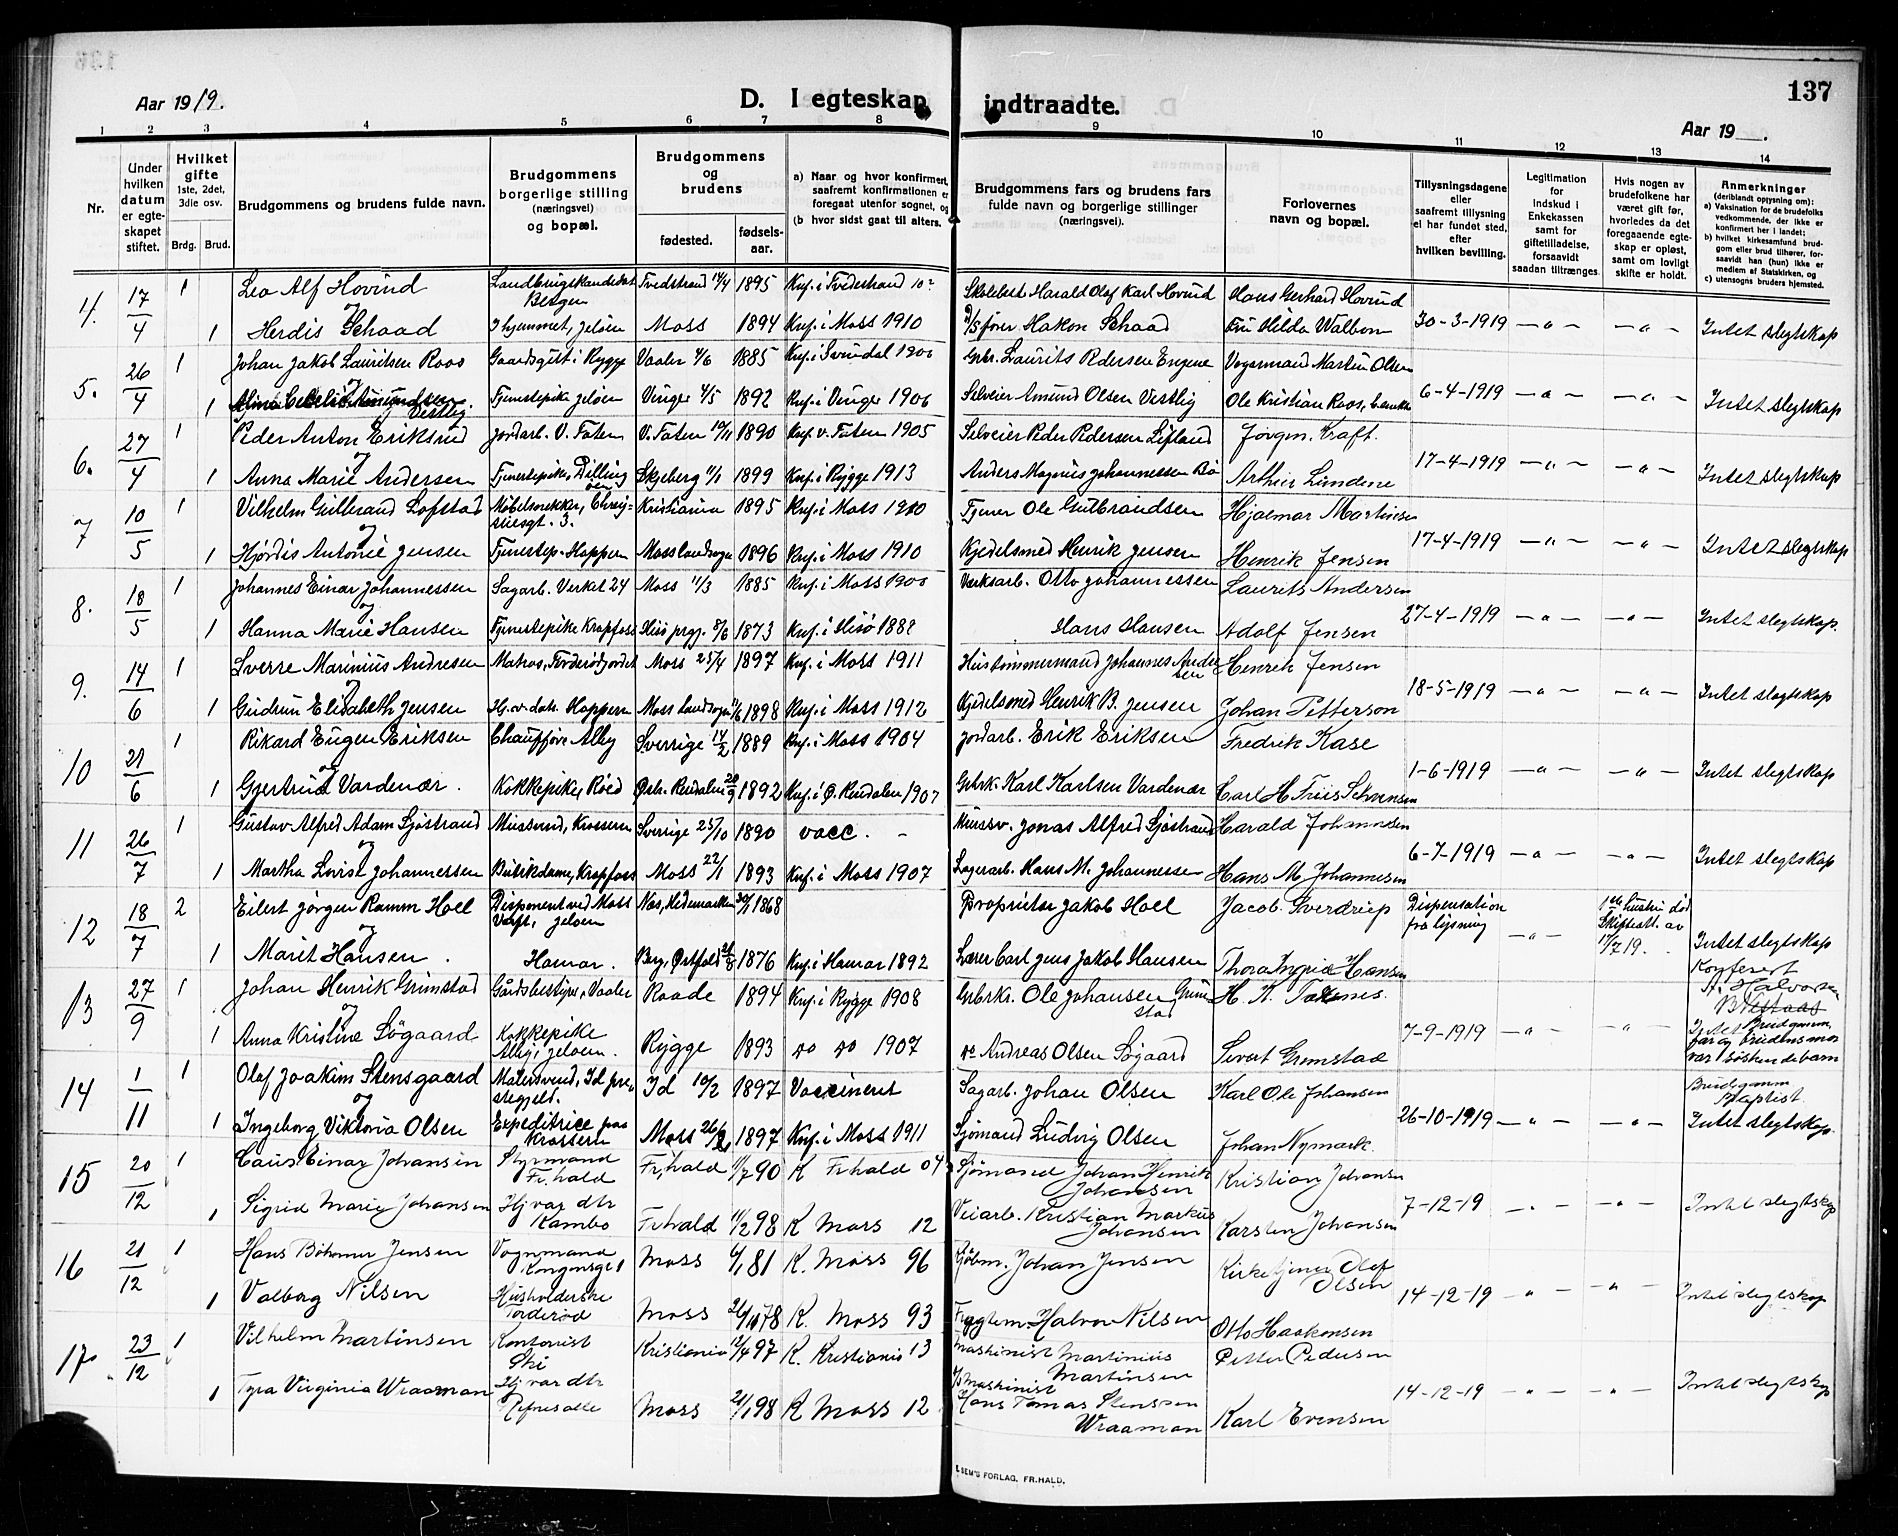 137
Aar 1919.
D. I egteskap indtraadte.
Aar 19    .
1 2 3 4 5 6 7 8 9 10 11 12 13 14
Nr.
Under hvilken datum er egteskapet stiftet.
Hvilket gifte 1ste, 2det, 3die osv.
Brdg. Brud.
Brudgommens og brudens fulde navn.
Brudgommens borgerlige stilling (næringsvei) og bopæl.
Brudgommens og brudens
fødested. fødselsaar.
a) Naar og hvor konfirmert, saafremt konfirmationen er foregaat utenfor sognet, og
(b hvor sidst gaat til alters.
Brudgommens fars og brudens fars fulde navn og borgerlige stillinger (næringsvei).
Forlovernes navn og bopæl.
Tillysningsdagene eller saafremt tillysning ei har fundet sted, efter hvilken bevilling.
Legitimation for indskud i Enkekassen samt for giftetilladelse, forsaavidt saadan tiltrænges.
Hvis nogen av brudefolkene har været gift før, hvorledes da det foregaaende egteskap er opløst, samt om lovligt skifte er holdt.
Anmerkninger (deriblandt opлysning om):
a) Vaksination for de brudefolks vedkommende, der ikke er konfirmert her i landet;
b) hvilket kirkesamfund brudgom eller brud tilhører, forsaavidt han (hun) ikke er medlem af Statskirken, og
c) utensogns bruders hjemsted.
4. 17/4 1 Leo Alf Hovind Landbrukskandidat Bergen Tvedestrand 14/4 1895 Knf. i Tvedestrand Harald Olaf Karl Hovind Hans Gerhard Hovind
og
1 Herdis Schaad I hjemmet, Jeløen Moss 1894 Knf. i Moss 1910 Hakon Schaad Fru Hilda Walbom 30-3-1919 — " — — " — Intet slegtskap
5. 26/4 1 Johan Jakob Lauritsen Roos Gaardsgut i Rygge Vaaler 4/6 1885 Knf. i Svindal 1900 Grbr. Laurits Pedersen Engene Vognmand Martin Olsen
og
1 Vestlig Tjenestepike Jeløen Vinger 4/5 1892 Knf. i Vinger 1906 Selveier Amund Olsen Vestlig Ole Kristian Roos, 6-4-1919 — " — — " — Intet slegtskap
6. 27/4 1 Peder Anton Eriksrud Jordarb. V. Toten V. Toten 10/11 1890 Knf. V. Toten 1905 Selveier Peder Pedersen Jørgen Kraft.
og
1 Anna Marie Andersen Tjenestepike, Dilling Skjeberg 11/1 1899 Knf. i Rygge 1913 Anders Magnus Johannessen Bø Arthur Lundene 17-4-1919 — " — — " — Intet slegtskap
7 10/5 1 Vilhelm Gulbrand Lofstad Møbelsnekker, Kristiania 1895 Knf. i Moss 1910 Tjener Ole Gulbrandsen Hjalmar Martinsen
og
1 Hjørdis Antonie Jensen Tjenestep. Hoppern Moss landsogn 1896 Knf. i Moss 1910 Kjedelsmed Henrik Jensen Henrik Jensen 17-4-1919 — " — — " — Intet slegtskap
8. 18/5 1 Johannes Einar Johannessen Sagarb. Verket 24 Moss 11/3 1885 Knf. i Moss 1900 Verksarb. Otto Johannessen Laurits Andersen
og
1 Hanna Marie Hansen Tjenestepike Krapfoss Hisø prgj. 8/6 1873 Knf. i Hisø 1888 Hans Hansen Adolf Jensen 27-4-1919 — " — — " — Intet slegtskap.
9. 14/6 1 Sverre Marinius Andresen Matros, Moss 25/4 1897 Knf. i Moss 1911 Hustømmermand Johannes Andersen Henrik Jensen
og
1 Gudrun Elisabeth Jensen Hj.v. datr. Hoppern Moss landsogn 1898 Knf. i Moss 1912 Kjedelsmed Henrik B. Jensen Johan Petterson 18-5-1919 — " — — " — Intet slegtskap
10 21/6 1 Rikard Eugen Eriksen Chauffør Alby Sverrige 14/2 1889 Knf. i Moss 1904 Jordarb. Erik Eriksen Fredrik Kase
og
1 Gjertrud Vardenær. Kokkepike, Røed Østr. Rendalen 20/9 1892 Knf. i Ø. Rendalen 1907 Grbrk. Karl Karlsen Vardenær Carl H Friis 1-6-1919 — " — — " — Intet slegtskap
11 26/7 1 Gustav Alfred Adam Sjøstrand Krossern Sverrige 25/10 1890 vacc. — Jonas Alfred Sjøstrand Harald Johannesen
og
1 Martha Lovise Johannessen Butikdame, Krapfoss Moss 22/1 1893 Knf. i Moss 1907 Lagerarb. Hans M. Johannessen Hans M. Johannesen 6-7-1919 — " — — " — Intet slegtskap
12 18/7 2 Eilert Jørgen Ramm Hoel Disponent ved Moss Værft, Jeløen Nes, Hedemarken 30/1 1868 Proprietær Jakob Hoel Jacob Sverdrup Dispensation fra lysning 1ste hustru død Skifteatt. av 17/7 19.
og
1 Marit Hansen. Hamar. Berg, Østfold 21/8 1876 Knf. i Hamar 1892 Lærer Carl Jens Jakob Hansen Thora Ingrid Hansen — " — Intet slegtskap
13 27/9 1 Johan Henrik Grimstad Gårdsbestyrer, Vaaler Raade 1894 Knf. i Rygge 1908 Grbrk. Ole Johansen Grimstad H. K. Toxnes. Konferert
og
1 Anna Kristine Søgaard Kokkepike Alby, Jeløen. Rygge 1893 do do 1907 do Andreas Olsen Søgaard Sivert Gromstad 7-9-1919 — " — — " — Brudgommens far og brudens mor var søskendebarn
14 1/11 1 Olaf Joakim Stensgaard Id prestegjeld. Id 10/2 1897 Vaccineret Sagarb. Johan Olsen Karl Ole Johansen Brudgomm Baptist.
og
1 Ingeborg Viktoria Olsen Expeditrice paa Krossern Moss 1897 Knf. i Moss 1911 Sjømand Ludvig Olsen Johan Nymark. 26-10-1919 — " — — " — Intet slegtskap.
15 20/12 1 Claus Einar Johansen Styrmand Fr.hald Fr.hald 11/7 90 K Fr.hald 04 Sjømand Johan Henrik Johansen Kristian Johansen
1 Sigrid Marie Johansen Hj var dtr Kambo Fr.hald 11/2 98 K Moss 12 Veiarb. Kristian Markus Johansen Karsten Johansen 7-12-19 — " — — " — Intet slegtskap
16 21/12 1 Hans Bøhmer Jensen Vognmand Kongensgt Moss 81 K. Moss 96 Kjøbm. Johan Jensen Kirketjener Olaf Olsen
1 Valborg Nilsen Husholderske Torderød Moss 78 K. Moss 93 Halvor Nilsen Otto Haakonsen 14-12-19 " " Intet slegtskap
17. 23/12 1 Vilhelm Martinsen Kontorist Ski Kristiania 12/4 97 K. Kristiania 13 Maskinist Martinius Martinsen Petter Pedersen
1 Tyra Virginia Wraaman Hj var dtr Refnesalle Moss 21/1 98 K Moss 12 Maskinist Hans Tomas Stensen Wraaman Karl Evensen 14-12-19 — " — — " — Intet slegtskap
SEM'S FORLAG, FR.HALD.